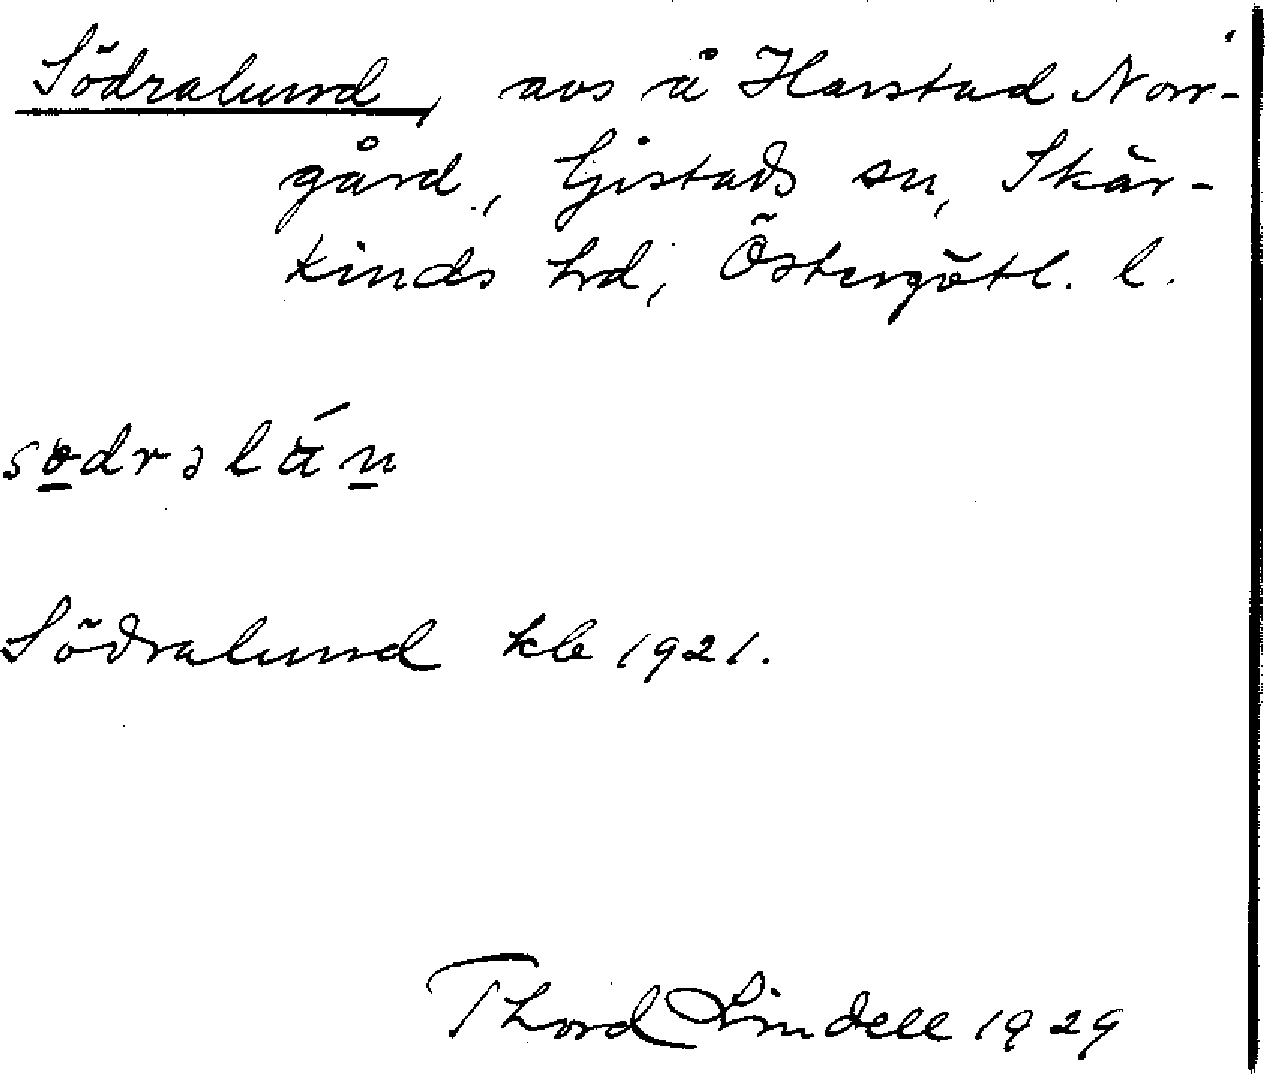 Södralund, avs å Harstad Norr-
gård, Gistads sn, Skär-
kinds hd, Östergötl. l.
södrəlún
Södralund kb 1921.
Thord Lindell 1929